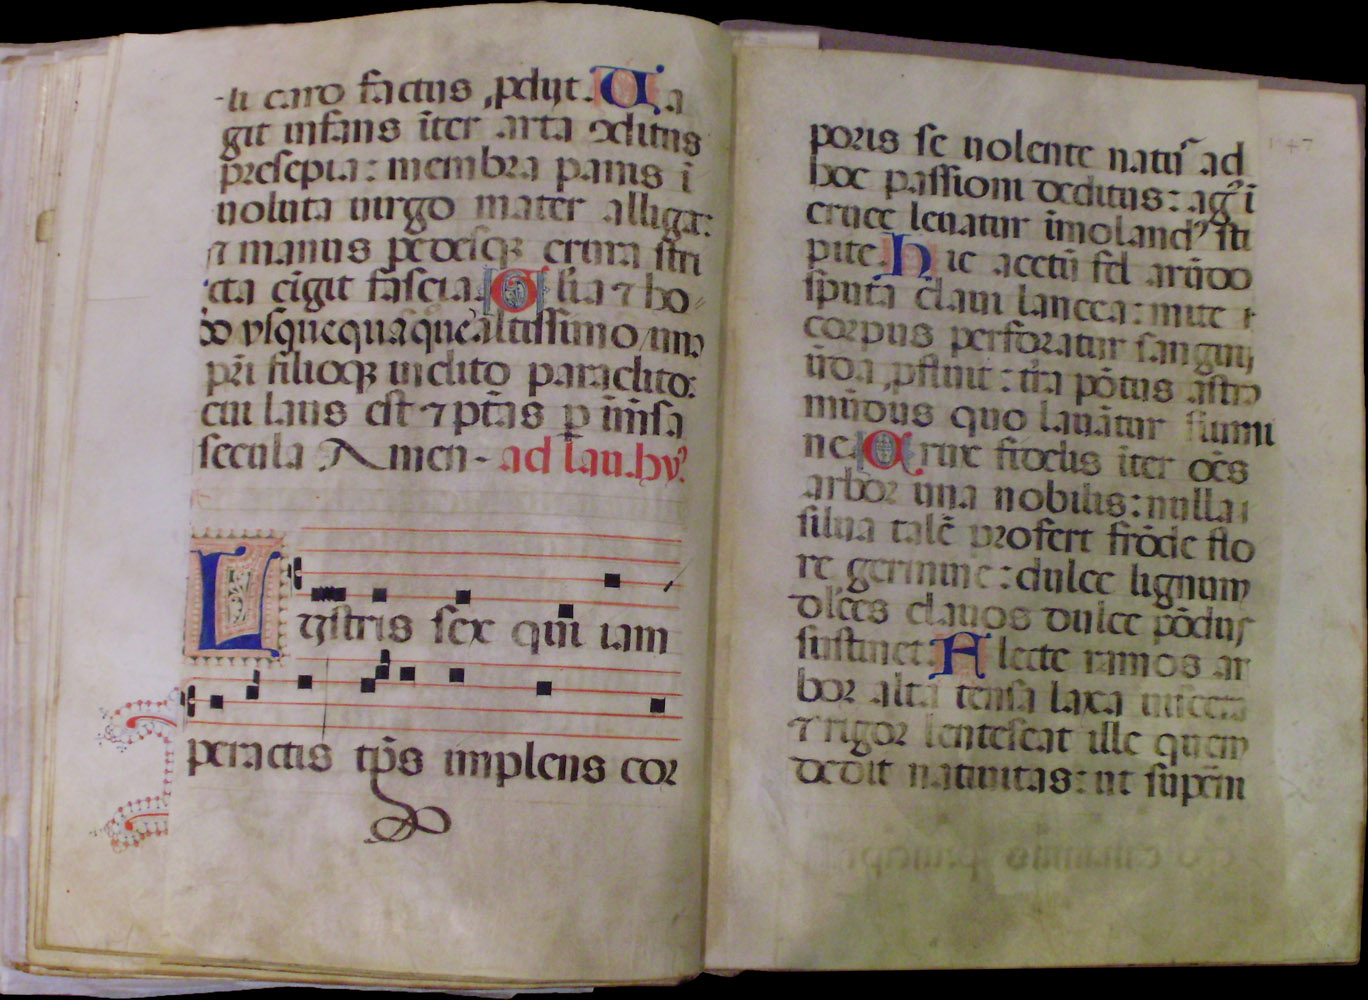 -li caro factus ꝓdijt. Ua
git infans īter arta ɔditus
presepia: membra panis ī
uoluta uirgo mater alligat:
⁊ manus pedesqꝫ crura stri
cta cīgit fascia. Glīa ⁊ ho
do usquequāque altissimo/un
pri filioqꝫ inclito paraclito:
cui laus est ⁊ ptās ꝑ īmēsa
secula Amen- ad lau. hy.
Lustris sex qui iam
peractis tp̄s implens cor
poris se uolente natus ad
hoc passioni deditus: agꝰ ī
cruce leuatur īmolandꝰ sti
pite. Hic acetū fel arūdo
sputa claui lancea: mite
corpus perforatur sanguis
ūda ꝓfluit: tr̄a pōtus astra
mūdus quo lauātur flumi
ne. Crux fidelis īter oēs
arbor una nobilis: nulla
silua talē profert frōde flo
re germine: dulce lignum
dlces clauos dulce pōdus
sustinet. Flecte ramos ar
bor alta tensa laxa uiscera
⁊ rigor lentescat ille quem
dedit natiuitas: ut supēni